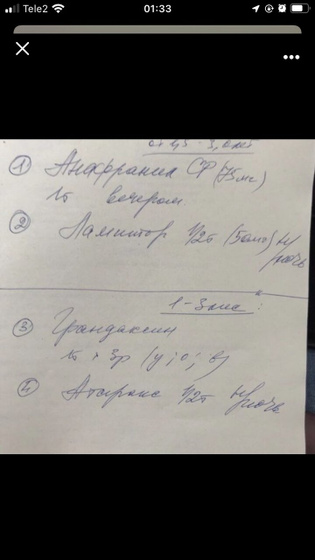 Tele2 01:33
от 1,5 - 3,0 лет
① Анафранил СР (75мг)
1т вечером
② Ламитор 1/2т (50мг) н/ночь
1-3 мес:
③ Грандаксин
1т × 3р (у; о; в)
④ Атаракс 1/2т н/ночь